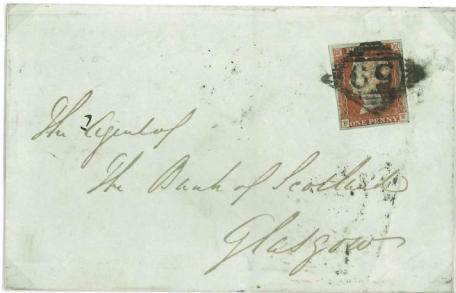 ONE PENNY
The Agent of
The Bank of Scotland
Glasgow